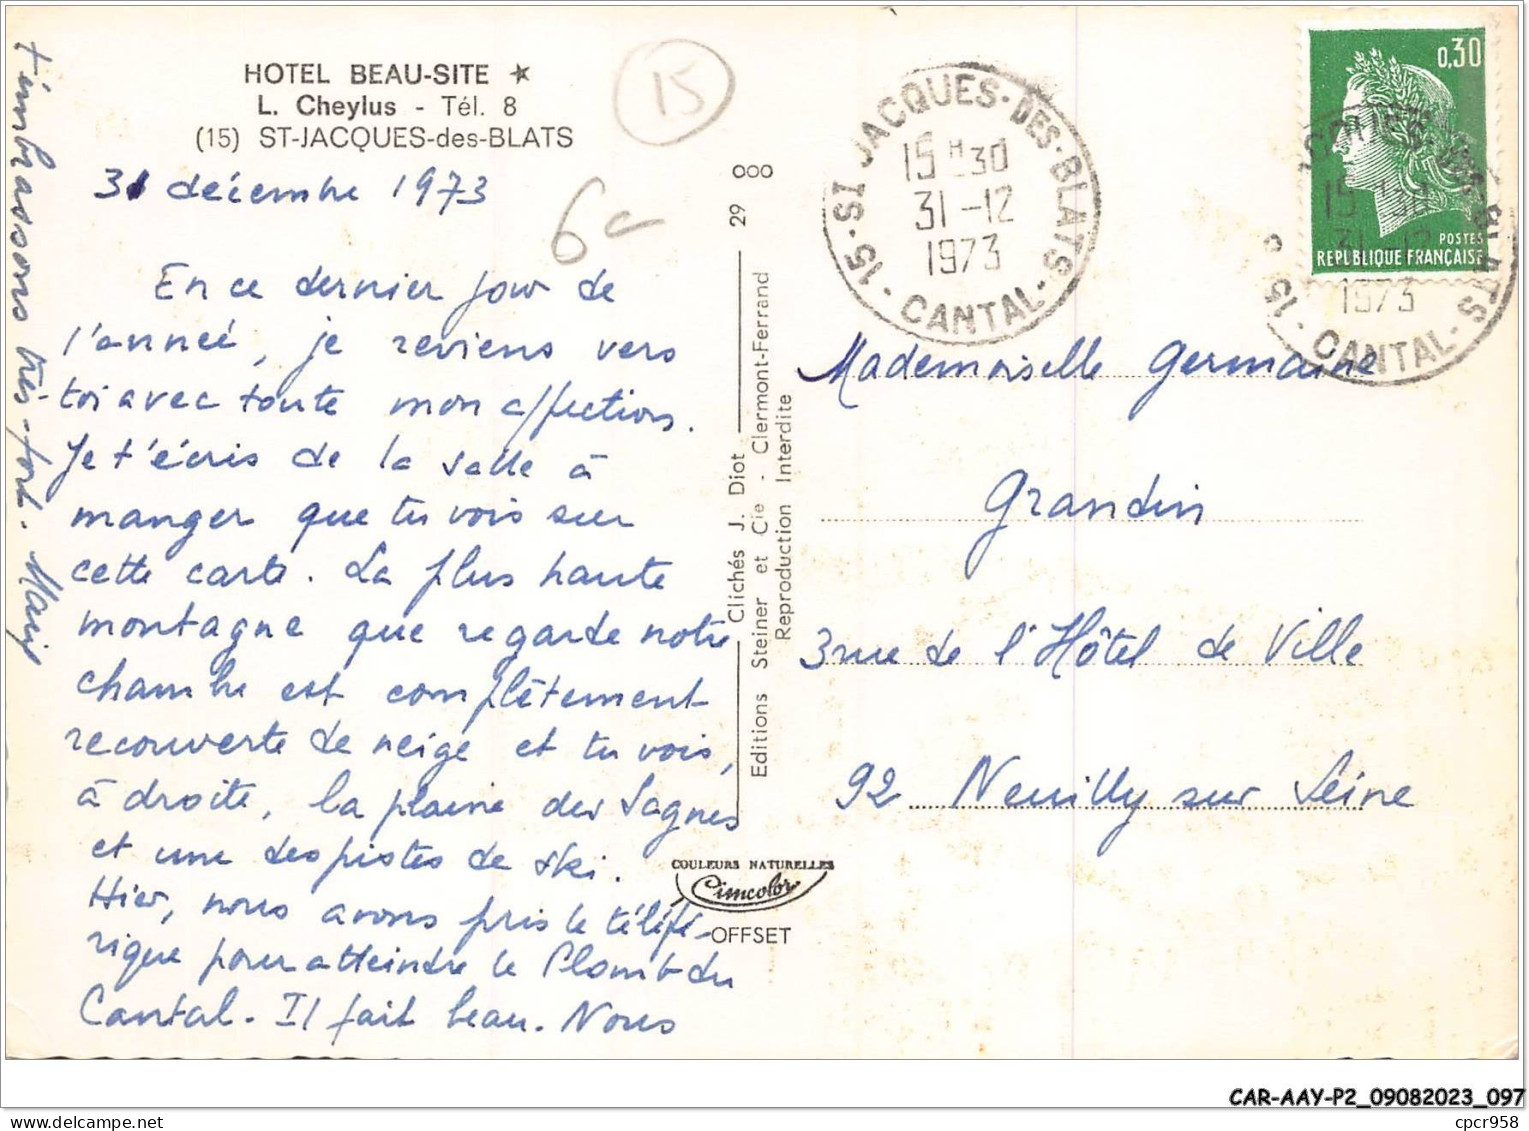 HOTEL BEAU-SITE ★
L. Cheylus - Tél. 8
(15) ST-JACQUES-des-BLATS
15
6
31 décembre 1973
En ce dernier jour de
l'année, je reviens vers
toi avec toute mon affection.
Je t'écris de la salle à
manger que tu vois sur
cette carte. La plus haute
montagne que regarde notre
chambre est complètement
recouverte de neige et tu vois,
à droite, la plaine des Sagnes
et une des pistes de ski.
Hier, nous avons pris le téléfé-
rique pour atteindre le Plomb du
Cantal. Il fait beau. Nous
t'embrassons très fort.
29 Clichés J. Diot
Editions Steiner et Cie - Clermont-Ferrand
Reproduction Interdite
COULEURS NATURELLES
Cimcolor
OFFSET
15 - ST JACQUES-DES-BLATS - CANTAL
15 H 30
31-12
1973
0,30
POSTES
REPUBLIQUE FRANÇAISE
15 H 30
31-12
1973
15 - CANTAL -
Mademoiselle Germaine
Grandin
3 rue de l'Hôtel de Ville
92 Neuilly sur Seine
CAR-AAY-P2_09082023_097
cpcr958